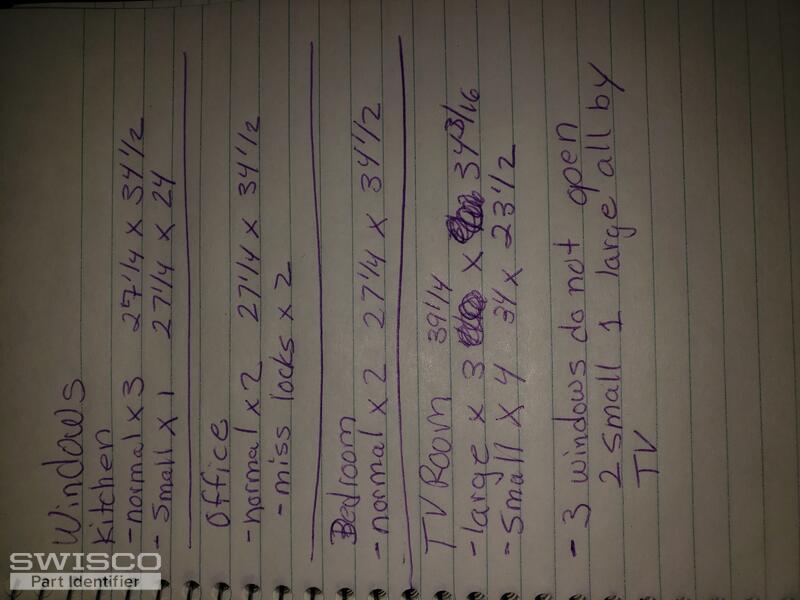 Windows
Kitchen
- normal x 3 27 1/4 x 34 1/2
- Small x 1 27 1/4 x 24
Office
- normal x 2 27 1/4 x 34 1/2
- miss locks x 2
Bedroom
- normal x 2 27 1/4 x 34 1/2
TV Room 39 1/4
- large x 3 x 34 3/16
- Small x 4 34 x 23 1/2
- 3 windows do not open
2 small 1 large all by
TV
SWISCO
Part Identifier